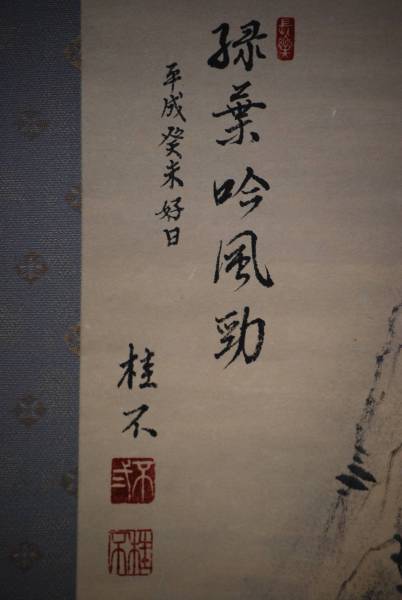 緑葉吟風勁
平成癸未好日
桂不